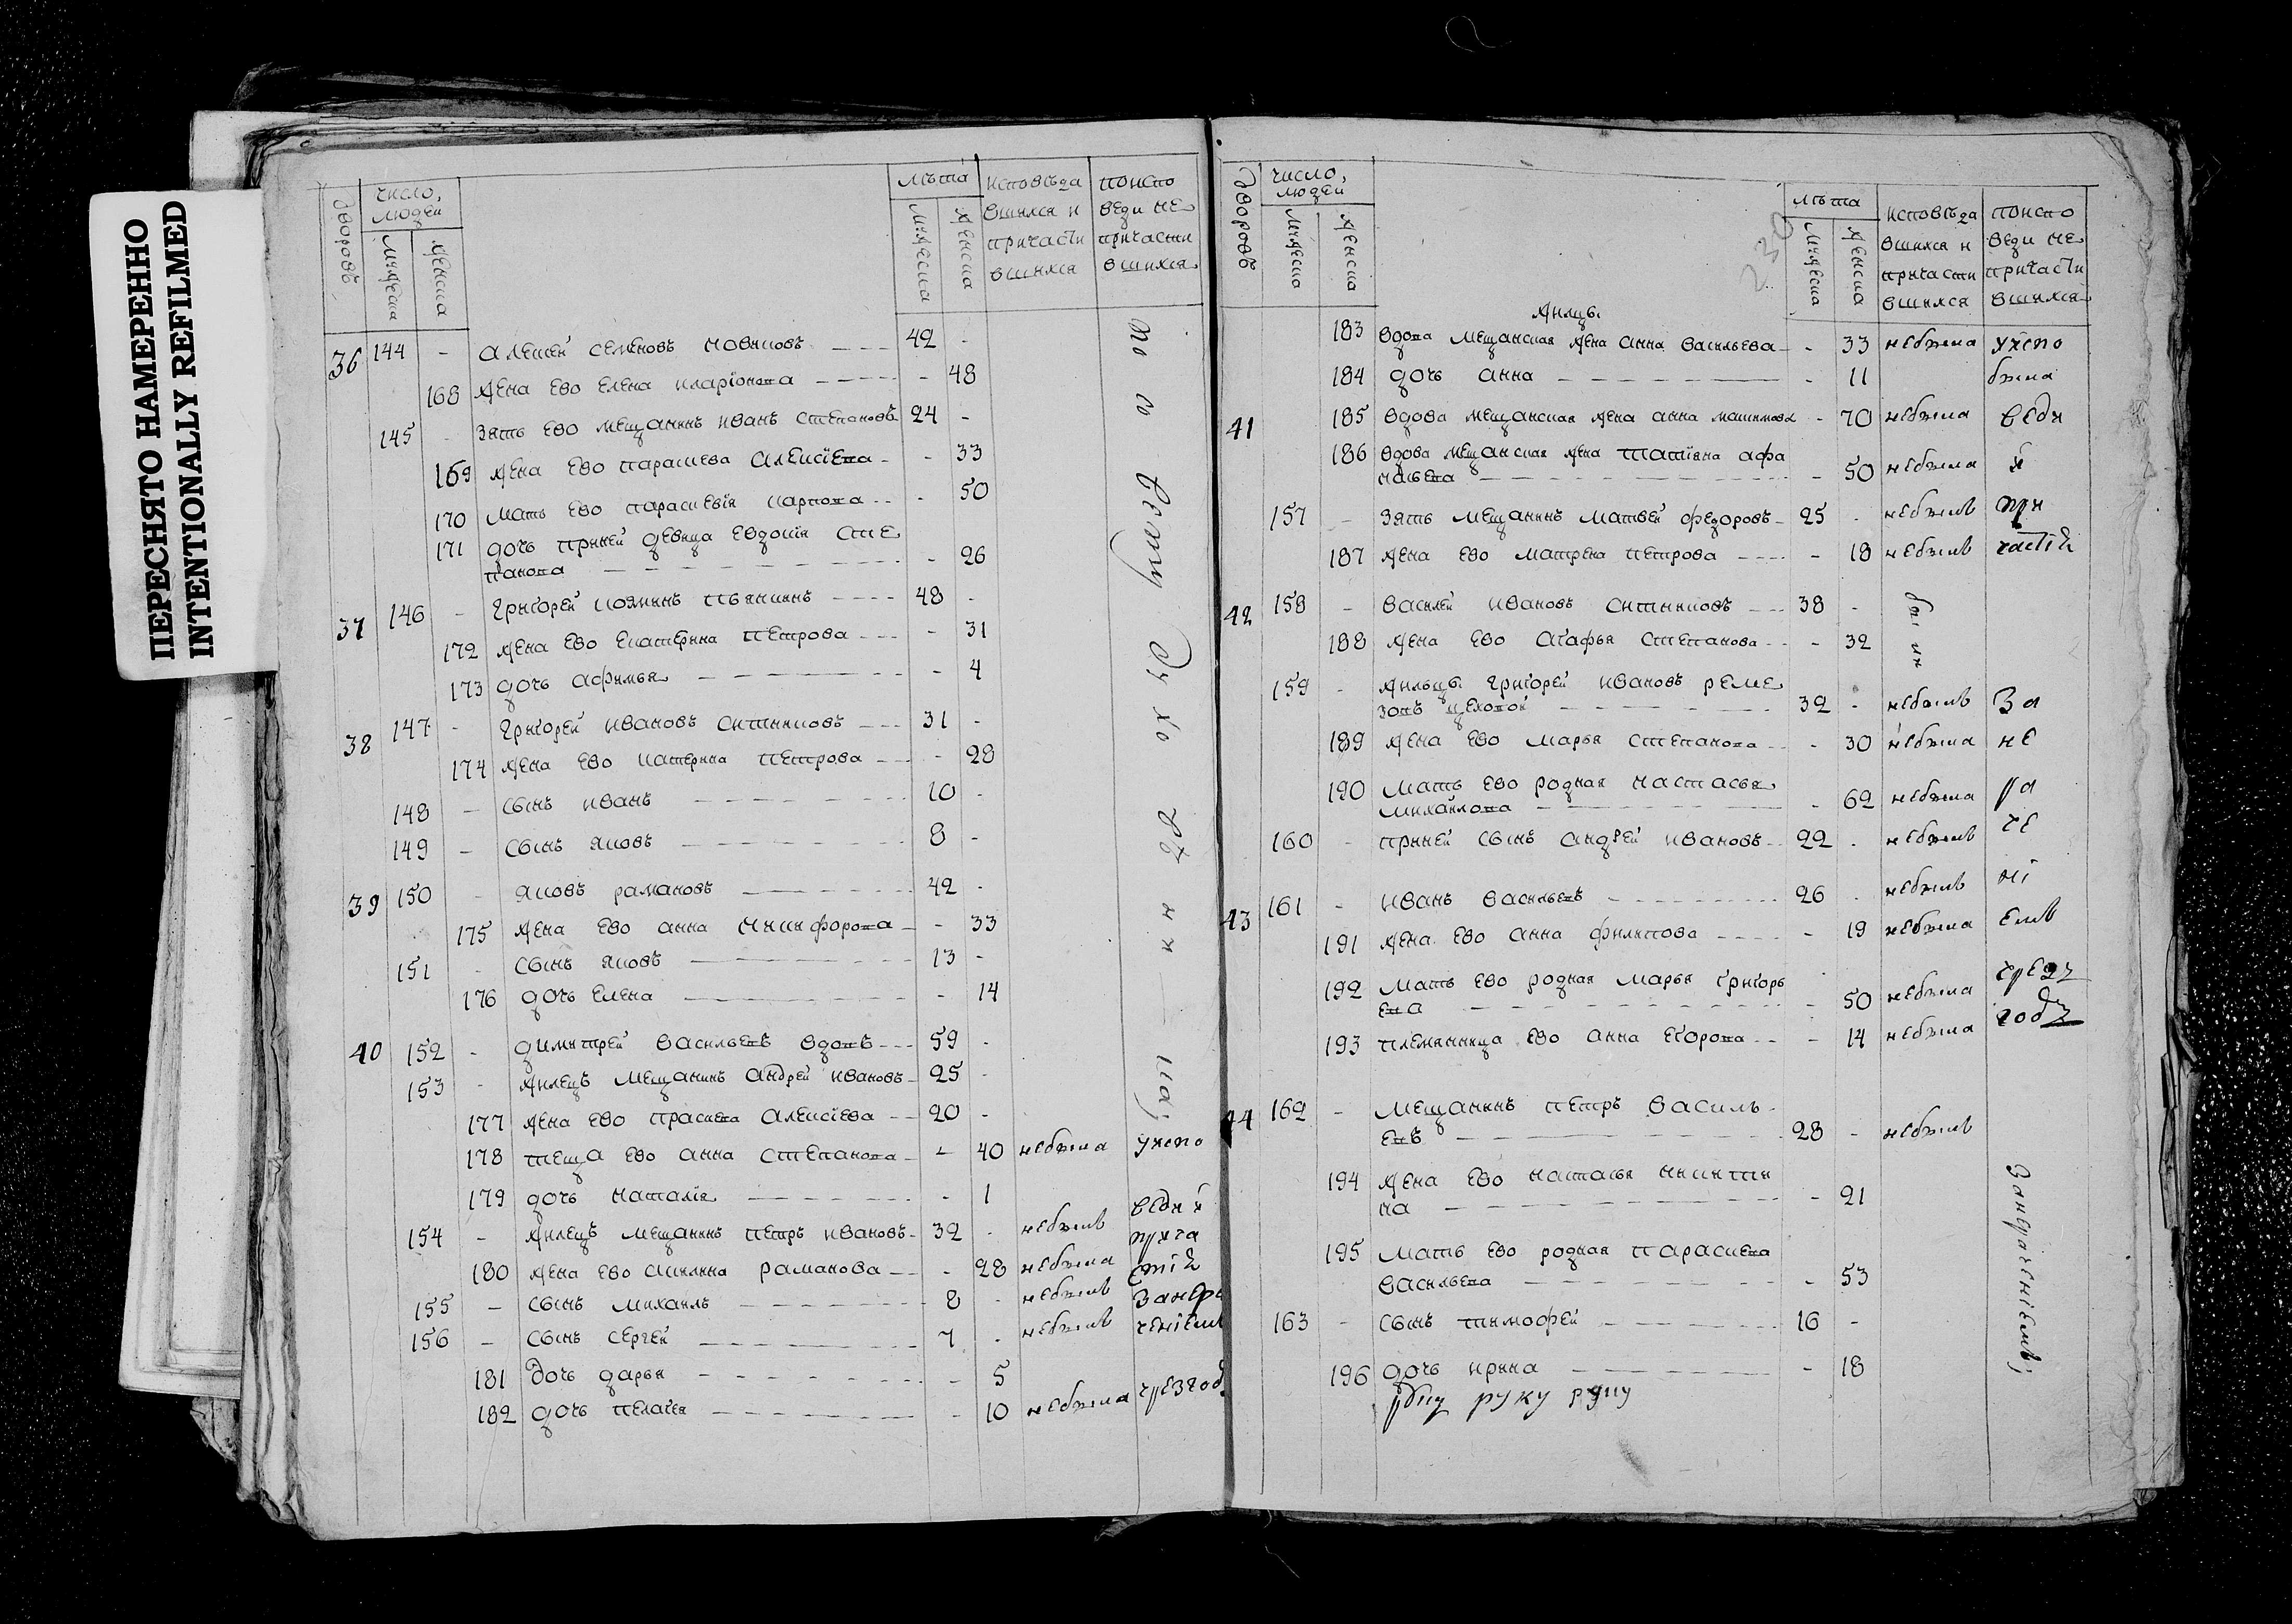 ПЕРЕСНЯТО НАМЕРЕННО
INTENTIONALLY REFILMED
дворовъ
число,
людей
мужеска
женска
лѣта
мужеска
женска
исповѣда
вшихся и
причасти
вшихся
поиспо
веди не
причасти
вшихся
36 144 - алексей семеновъ новиковъ 42 -
168 жена ево елена иларіонова - 48
145 - зять ево мещанинъ иванъ степановъ 24 -
169 жена ево параскева алексіева - 33
170 мать ево параскевія карпова - 50
171 дочь приней девица евдокия сте
панова - 26
37 146 - григорей козминъ пьянкинъ 48 -
172 жена ево екатерина петрова - 31
173 дочь афимья - 4
38 147 - григорей ивановъ ситниковъ 31 -
174 жена ево катерина петрова - 28
148 - сынъ иванъ 10 -
149 - сынъ яковъ 8 -
39 150 - яковъ рамановъ 42 -
175 жена ево анна никифорова - 33
151 - сынъ яковъ 13 -
176 дочь елена - 14
40 152 - димитрей васильевъ вдовъ 59 -
153 - жилецъ мещанинъ андрей ивановъ 25 -
177 жена ево праскева алексіева 20 -
178 теща ево анна степанова - 40 небыла уиспо
179 дочь наталія - 1
веди и
154 - жилецъ мещанинъ петръ ивановъ 32 - небылъ прича
180 жена ево акилина раманова - 28 небыла стія
155 - сынъ михаилъ 8 - небылъ занера
156 - сынъ сергей 7 - небылъ ченіемъ
181 дочь дарья - 5
182 дочь пелагея - 10 небыла чрезгодъ
230
дворовъ
число,
людей
мужеска
женска
лѣта
мужеска
женска
исповѣда
вшихся и
причасти
вшихся
поиспо
веди не
причасти
вшихся
жилцы
183 вдова мещанская жена анна васильева - 33 небыла уиспо
184 дочь анна - 11 была
41 185 вдова мещанская жена анна макимова - 70 небыла веди
186 вдова мещанская жена татіяна афа
насьева - 50 небыла и
157 - зять мещанинъ матвей федоровъ 25 - небылъ при
187 жена ево матрена петрова - 18 небылъ частія
42 158 - василей ивановъ ситниковъ 38 -
188 жена ево агафья степанова - 32
159 - жильцы григорей ивановъ реме
зовъ цеховой 32 - небылъ за
189 жена ево марья степанова - 30 небыла не
190 мать ево родная настасья
михайлова - 62 небыла ра
160 - приней сынъ андрей ивановъ 22 - небылъ че
43 161 - иванъ васильевъ 26 - небылъ ні
191 жена ево анна филипова - 19 небыла емъ
192 мать ево родная марья григорь
ева - 50 небыла чрезъ
193 племянница ево анна егорова - 14 небыла годъ
44 162 - мещанинъ петръ василь
евъ 28 - небылъ
194 жена ево наталья никити
на - 21
195 мать ево родная параскева
васильева - 53
163 - сынъ тимофей 16 -
196 дочь ирина - 18
занерачениемъ
руку